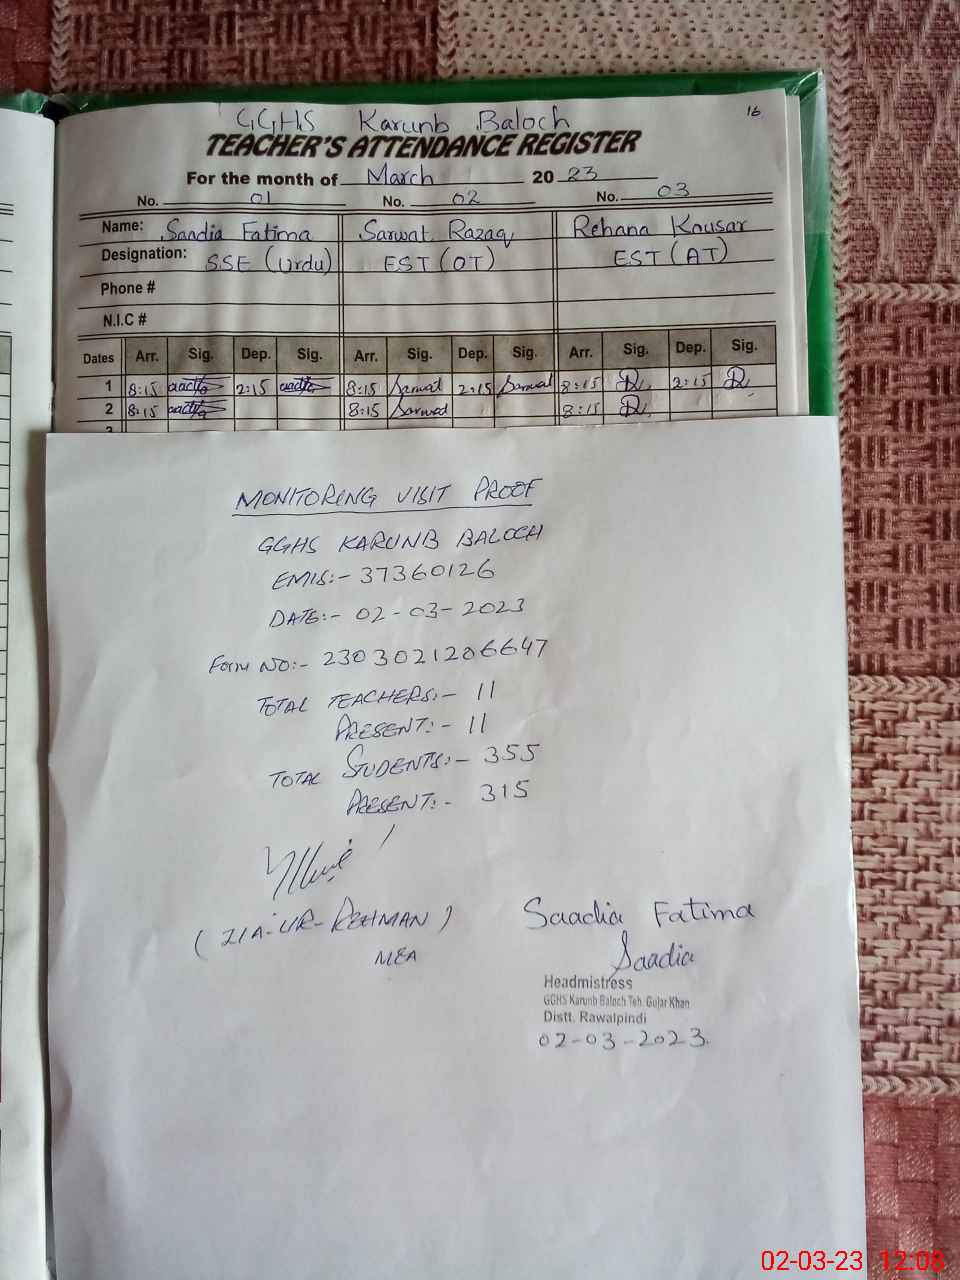 GGHS Karunb Baloch
16
TEACHER'S ATTENDANCE REGISTER
For the month of March 2023
No. 01 No. 02 No. 03
Name: Saadia Fatima Sarwat Razaq Rehana Kousar
Designation: SSE (Urdu) EST (OT) EST (AT)
Phone #
N.I.C #
Dates Arr. Sig. Dep. Sig. Arr. Sig. Dep. Sig. Arr. Sig. Dep. Sig.
1 8:15 2:15 8:15 Sarwat 2:15 Sarwat 8:15 2:15
2 8:15 8:15 Sarwat 8:15
MONITORING VISIT PROOF
GGHS KARUNB BALOCH
EMIS:- 37360126
DATE:- 02-03-2023
Form NO:- 2303021206647
TOTAL TEACHERS:- 11
PRESENT:- 11
TOTAL STUDENTS:- 355
PRESENT:- 315
(ZIA-UR-REHMAN)
MEA
Saadia Fatima
Saadia
Headmistress
GGHS Karunb Baloch Teh. Gujar Khan
Distt. Rawalpindi
02-03-2023.
02-03-23 12:08